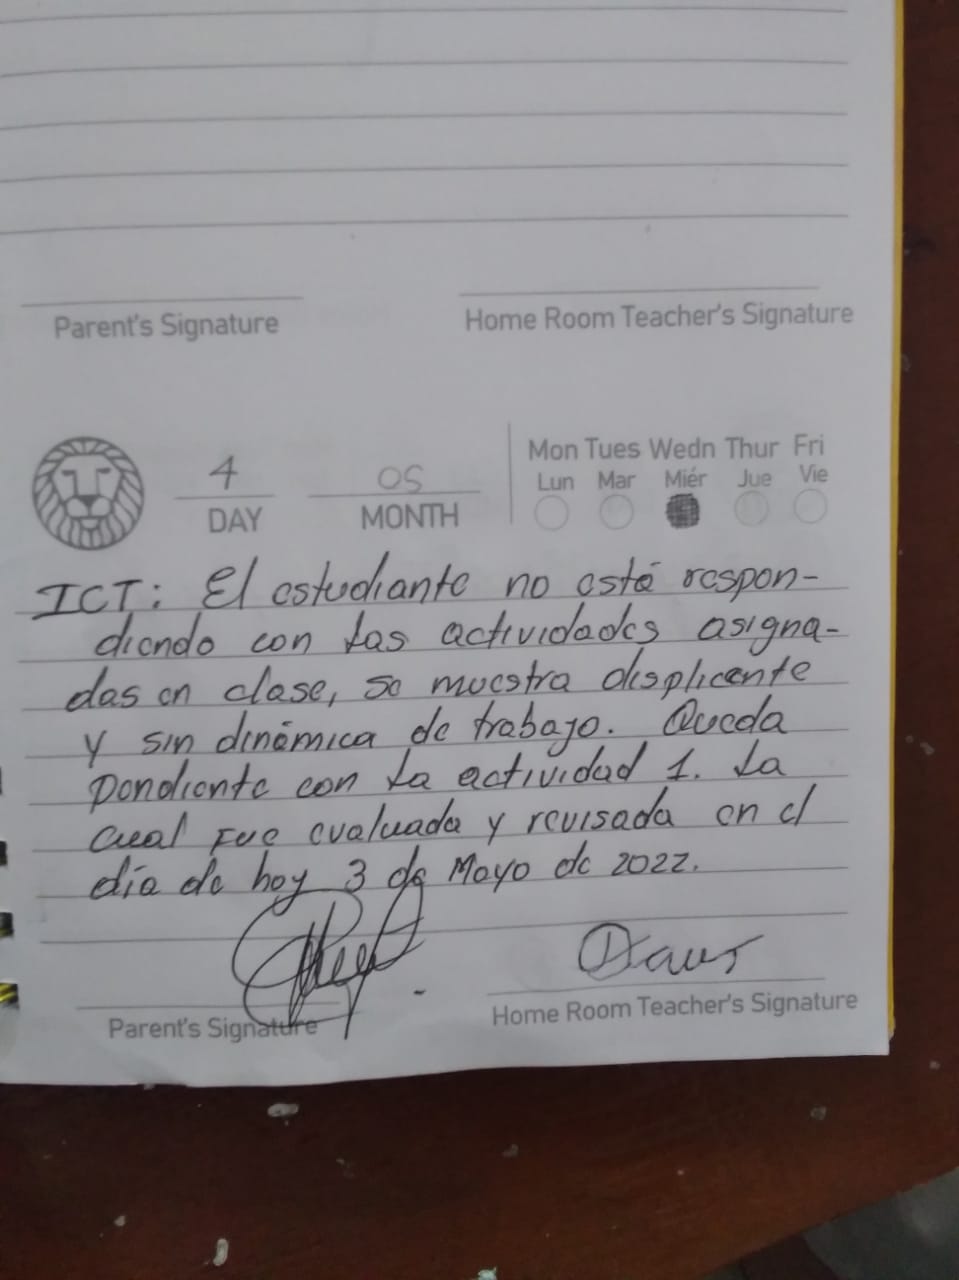 Parent's Signature
Home Room Teacher's Signature
4
05
DAY
MONTH
Mon Tues Wedn Thur Fri
Lun Mar Miér Jue Vie
ICT: El estudiante no está respon-
diendo con las actividades asigna-
das en clase, se muestra displicente
y sin dinámica de trabajo. Queda
Pendiente con la actividad 1. La
cual fue evaluada y revisada en el
día de hoy 3 de Mayo de 2022.
Parent's Signature
Home Room Teacher's Signature